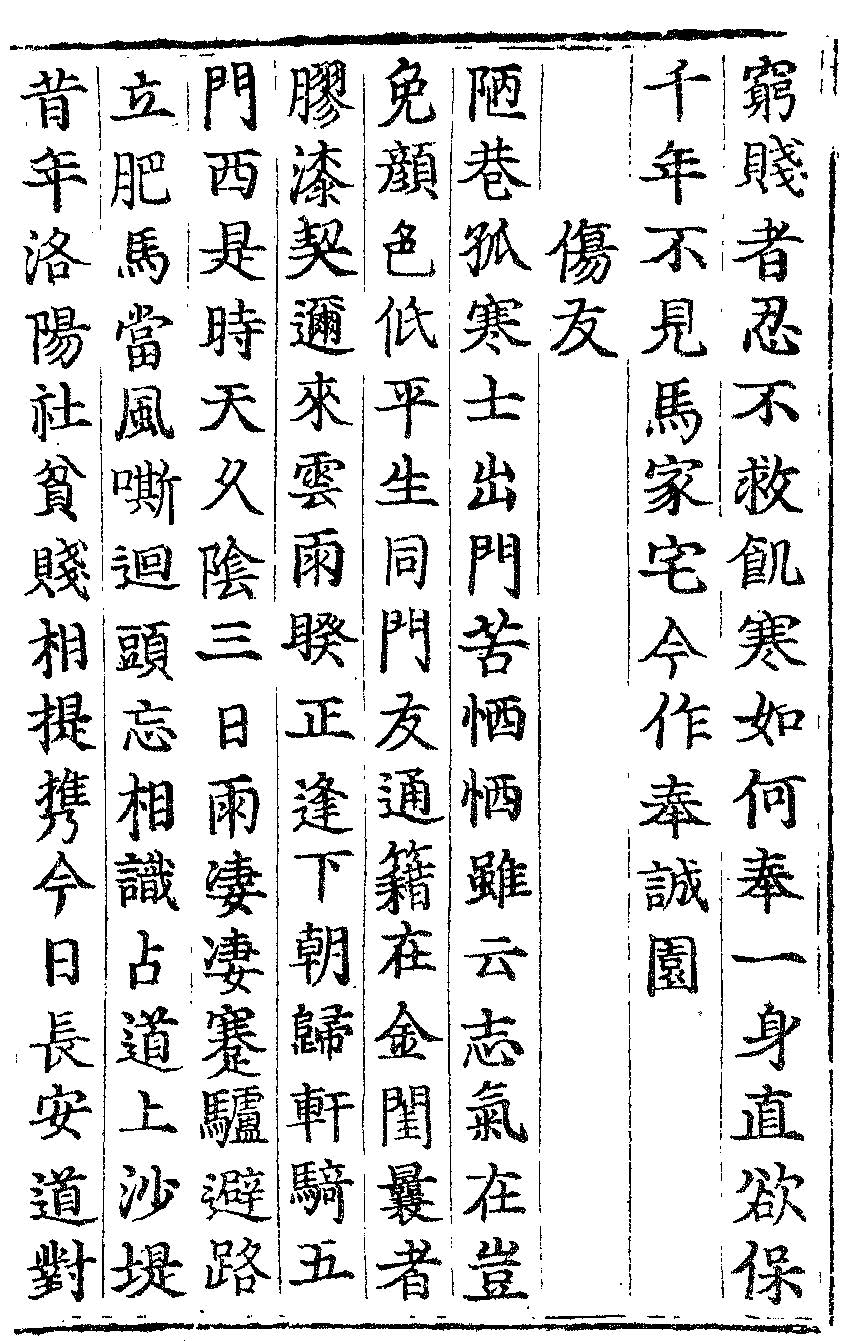 窮賤者忍不救飢寒如何奉一身直欲保
千年不見馬家宅今作奉誠園
傷友
陋巷孤寒士出門苦恓恓雖云志氣在豈
免顏色低平生同門友通籍在金閨曩者
膠漆契邇來雲雨睽正逢下朝歸軒騎五
門西是時天久陰三日雨凄凄蹇驢避路
立肥馬當風嘶迴頭忘相識占道上沙堤
昔年洛陽社貧賤相提携今日長安道對